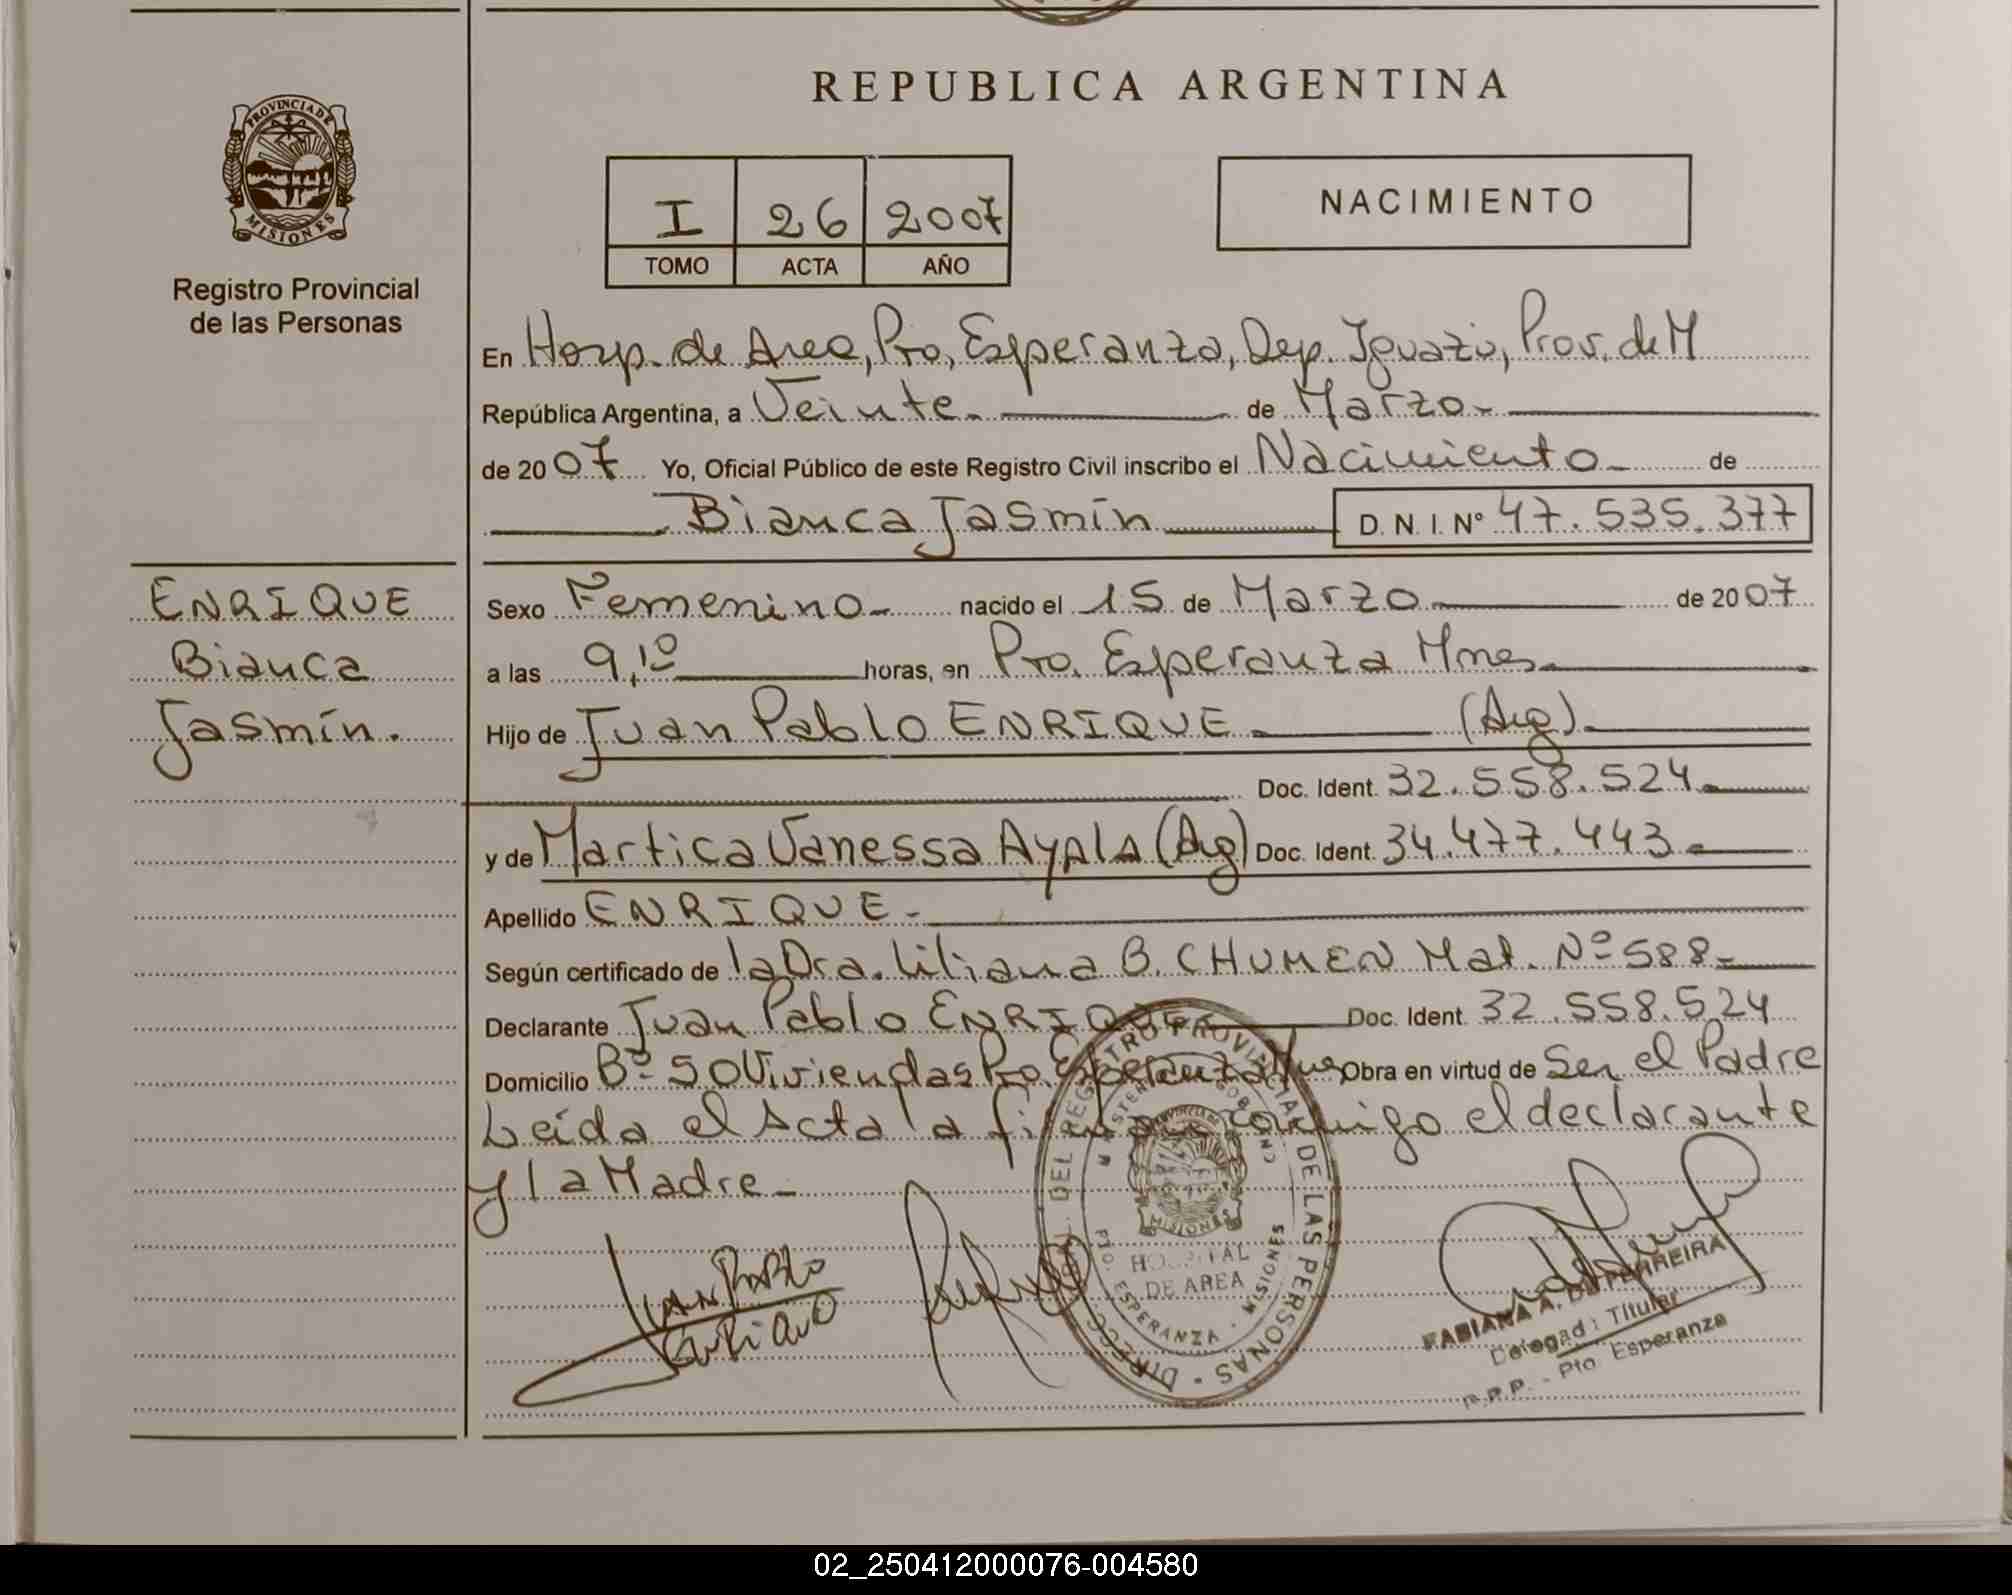 REPUBLICA ARGENTINA
PROVINCIA DE
MISIONES
Registro Provincial
de las Personas
I 26 2007
TOMO ACTA AÑO
NACIMIENTO
En Hosp. de Area, Pto, Esperanza, Dep. Iguazú, Prov. de M
República Argentina, a Veinte.- de Marzo.-
de 2007 Yo, Oficial Público de este Registro Civil inscribo el Nacimiento de
Bianca Jasmín D. N. I. Nº 47.535.377
ENRIQUE
Bianca
Jasmín.
Sexo Femenino.- nacido el 15 de Marzo de 2007
a las 9,10 horas, en Pto. Esperanza Mnes.
Hijo de Juan Pablo ENRIQUE (Arg).
Doc. Ident. 32.558.524.
y de Martica Vanessa Ayala (Arg) Doc. Ident. 34.477.443.
Apellido ENRIQUE.-
Según certificado de la Dra. Liliana B. CHUMEN Mat. Nº 588.-
Declarante Juan Pablo ENRIQUE Doc. Ident. 32.558.524
Domicilio Bº 50 Viviendas Pto. Esperanza Mnes Obra en virtud de Ser el Padre
Leída el Acta la firman conmigo el declarante
y la Madre.-
JUAN PABLO
DIRECC. DEL REGISTRO PROVINCIAL DE LAS PERSONAS
MISIONES
HOSPITAL
DE AREA
PTO. ESPERANZA - MISIONES
FABIANA A. DE FERREIRA
Delegada Titular
R.P.P. - Pto. Esperanza
02_250412000076-004580